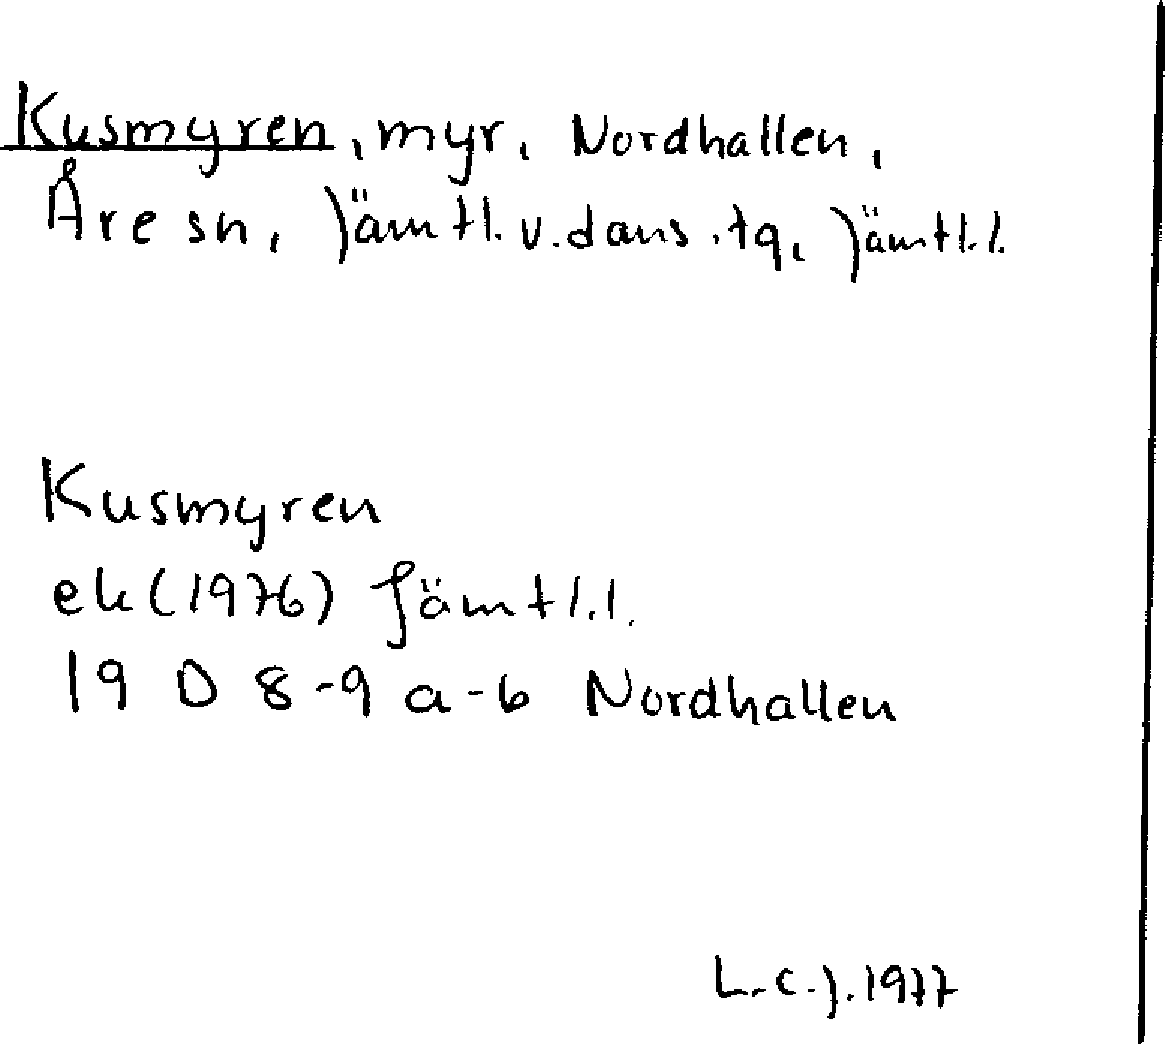 Kusmyren, myr, Nordhallen,
Åre sn, Jämtl. v. doms. tg, Jämtl. l.
Kusmyren
ek (1976) Jämtl. l.
19 D 8-9 a-b Nordhallen
L.C.J. 1977